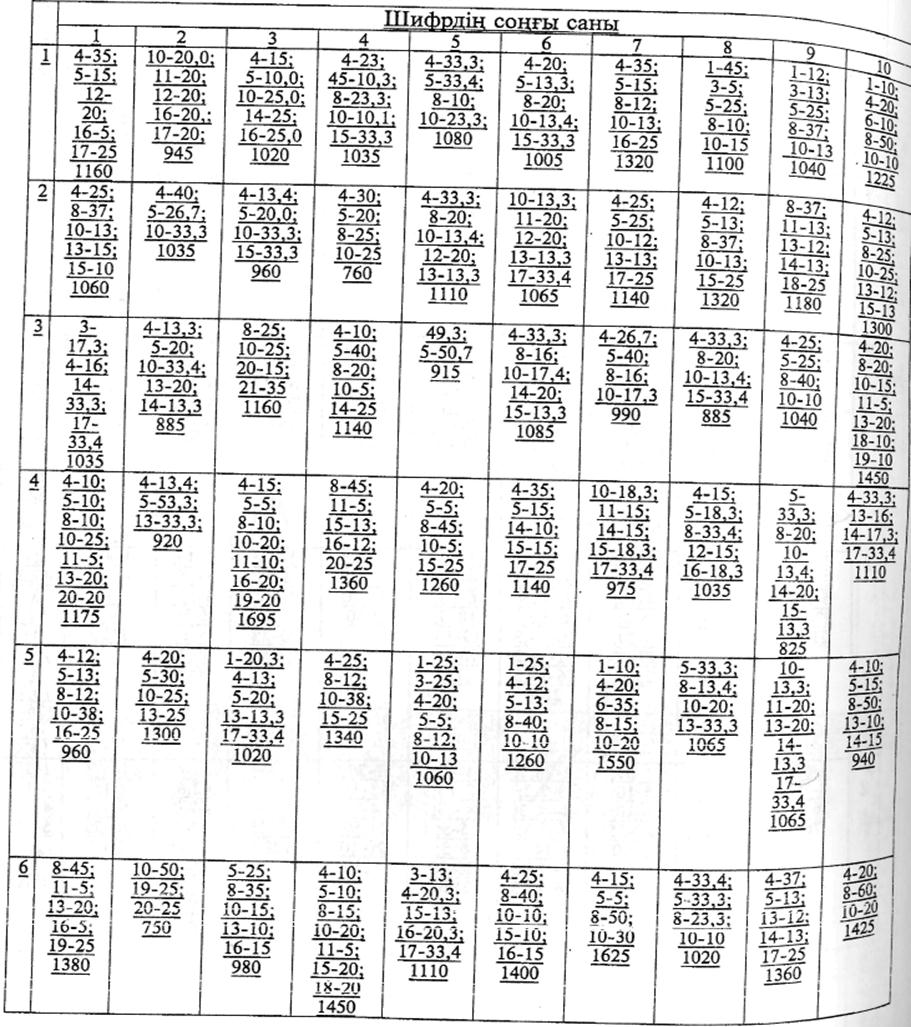 Шифрдің соңғы саны
1 2 3 4 5 6 7 8 9 10
1
4-35;
5-15;
12-
20;
16-5;
17-25
1160
10-20,0;
11-20;
12-20;
16-20,;
17-20;
945
4-15;
5-10,0;
10-25,0;
14-25;
16-25,0
1020
4-23;
45-10,3;
8-23,3;
10-10,1;
15-33,3
1035
4-33,3;
5-33,4;
8-10;
10-23,3;
1080
4-20;
5-13,3;
8-20;
10-13,4;
15-33,3
1005
4-35;
5-15;
8-12;
10-13;
16-25
1320
1-45;
3-5;
5-25;
8-10;
10-15
1100
1-12;
3-13;
5-25;
8-37;
10-13
1040
1-10;
4-20;
6-10;
8-50;
10-10
1225
2
4-25;
8-37;
10-13;
13-15;
15-10
1060
4-40;
5-26,7;
10-33,3
1035
4-13,4;
5-20,0;
10-33,3;
15-33,3
960
4-30;
5-20;
8-25;
10-25
760
4-33,3;
8-20;
10-13,4;
12-20;
13-13,3
1110
10-13,3;
11-20;
12-20;
13-13,3
17-33,4
1065
4-25;
5-25;
10-12;
13-13;
17-25
1140
4-12;
5-13;
8-37;
10-13;
15-25
1320
8-37;
11-13;
13-12;
14-13;
18-25
1180
4-12;
5-13;
8-25;
10-25;
13-12;
15-13
1300
3
3-
17,3;
4-16;
14-
33,3;
17-
33,4
1035
4-13,3;
5-20;
10-33,4;
13-20;
14-13,3
885
8-25;
10-25;
20-15;
21-35
1160
4-10;
5-40;
8-20;
10-5;
14-25
1140
49,3;
5-50,7
915
4-33,3;
8-16;
10-17,4;
14-20;
15-13,3
1085
4-26,7;
5-40;
8-16;
10-17,3
990
4-33,3;
8-20;
10-13,4;
15-33,4
885
4-25;
5-25;
8-40;
10-10
1040
4-20;
8-20;
10-15;
11-5;
13-20;
18-10;
19-10
1450
4
4-10;
5-10;
8-10;
10-25;
11-5;
13-20;
20-20
1175
4-13,4;
5-53,3;
13-33,3;
920
4-15;
5-5;
8-10;
10-20;
11-10;
16-20;
19-20
1695
8-45;
11-5;
15-13;
16-12;
20-25
1360
4-20;
5-5;
8-45;
10-5;
15-25
1260
4-35;
5-15;
14-10;
15-15;
17-25
1140
10-18,3;
11-15;
14-15;
15-18,3;
17-33,4
975
4-15;
5-18,3;
8-33,4;
12-15;
16-18,3
1035
5-
33,3;
8-20;
10-
13,4;
14-20;
15-
13,3
825
4-33,3;
13-16;
14-17,3;
17-33,4
1110
5
4-12;
5-13;
8-12;
10-38;
16-25
960
4-20;
5-30;
10-25;
13-25
1300
1-20,3;
4-13;
5-20;
13-13,3
17-33,4
1020
4-25;
8-12;
10-38;
15-25
1340
1-25;
3-25;
4-20;
5-5;
8-12;
10-13
1060
1-25;
4-12;
5-13;
8-40;
10-10
1260
1-10;
4-20;
6-35;
8-15;
10-20
1550
5-33,3;
8-13,4;
10-20;
13-33,3
1065
10-
13,3;
11-20;
13-20;
14-
13,3
17-
33,4
1065
4-10;
5-15;
8-50;
13-10;
14-15
940
6
8-45;
11-5;
13-20;
16-5;
19-25
1380
10-50;
19-25;
20-25
750
5-25;
8-35;
10-15;
13-10;
16-15
980
4-10;
5-10;
8-15;
10-20;
11-5;
15-20;
18-20
1450
3-13;
4-20,3;
15-13;
16-20,3;
17-33,4
1110
4-25;
8-40;
10-10;
15-10;
16-15
1400
4-15;
5-5;
8-50;
10-30
1625
4-33,4;
5-33,3;
8-23,3;
10-10
1020
4-37;
5-13;
13-12;
14-13;
17-25
1360
4-20;
8-60;
10-20
1425